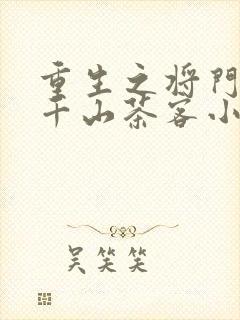 重生之将门
千山茶客小
吴笑笑